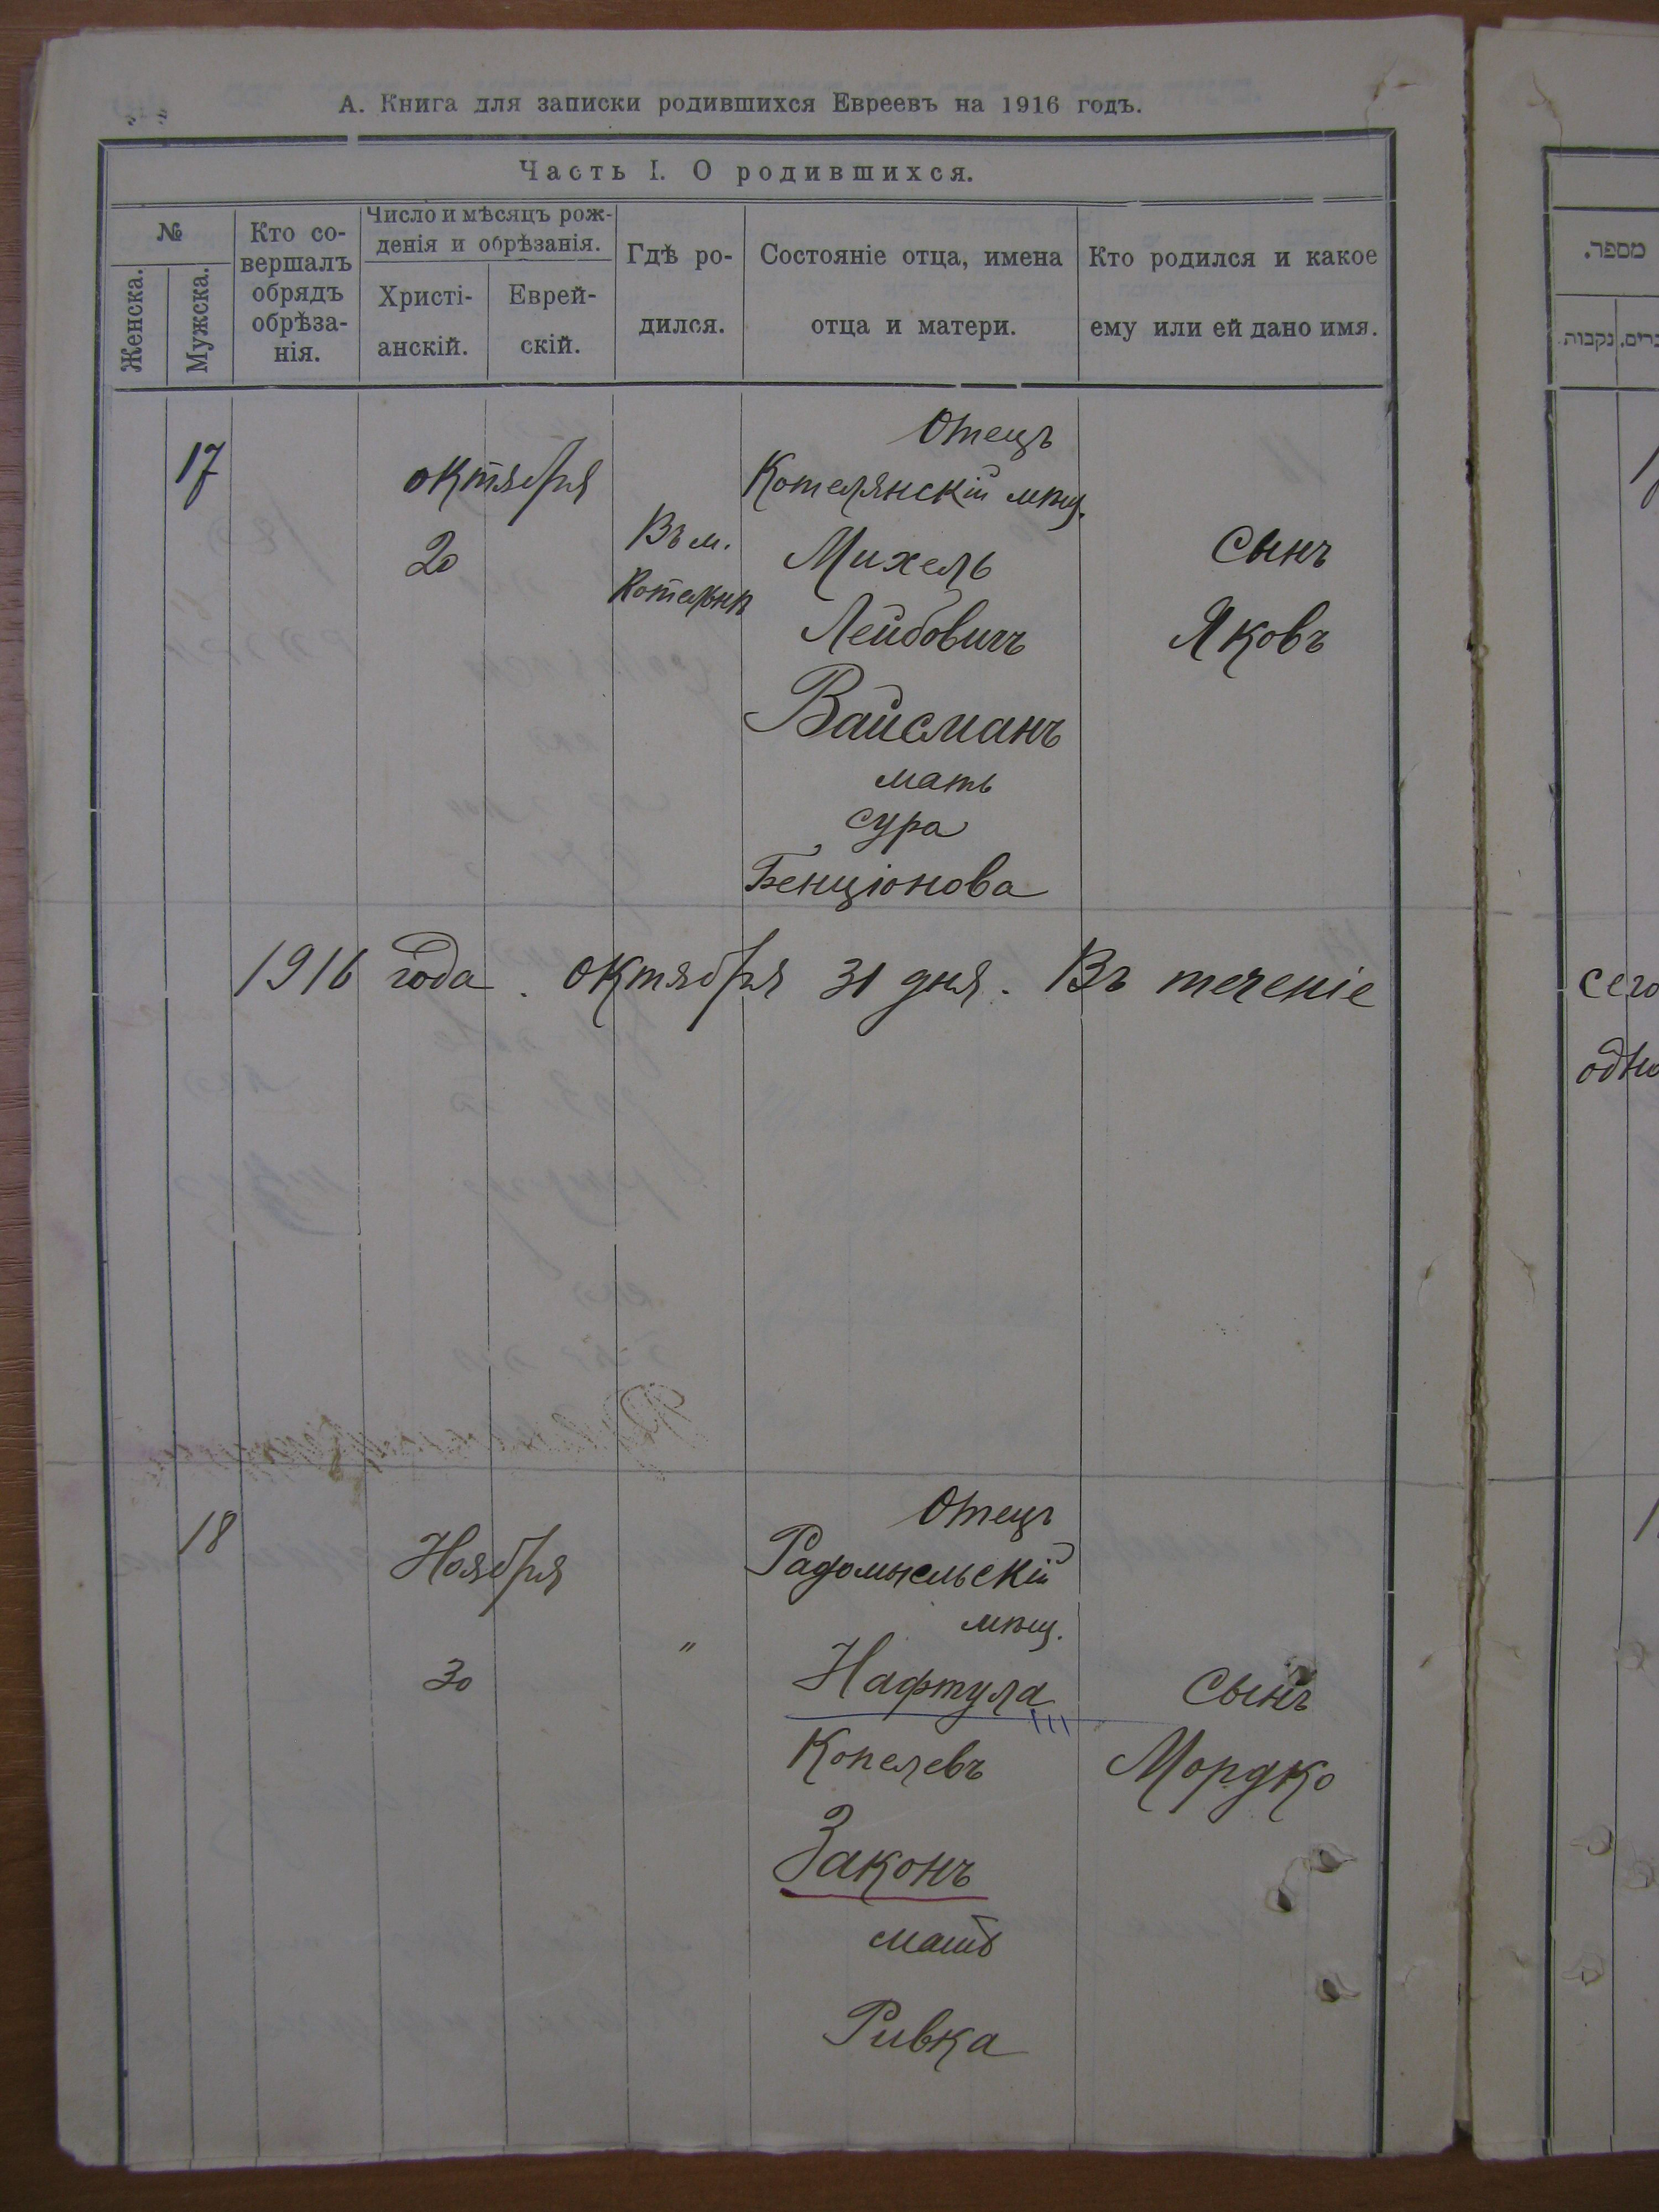 А. Книга для записки родившихся Евреевъ на 1916 годъ.
Часть I. О родившихся.
№
Женска.
Мужска.
Кто со-
вершалъ
обрядъ
обрѣза-
нія.
Число и мѣсяцъ рож-
денія и обрѣзанія.
Христі-
анскій.
Еврей-
скій.
Гдѣ ро-
дился.
Состояніе отца, имена
отца и матери.
Кто родился и какое
ему или ей дано имя.
17
октября
20
Въ м.
Котельнѣ
Отецъ
Котелянскій мѣщ.
Михель
Лейбовичъ
Вайсманъ
мать
сура
Бенціонова
Сынъ
Яковъ
1916 года. октября 31 дня. Въ теченіе
18
Ноября
30
"
Отецъ
Радомысльскій
мѣщ.
Нафтула
Копелевъ
Законъ
мать
Ривка
Сынъ
Мордко
מספר.
נקבות
сего
одно